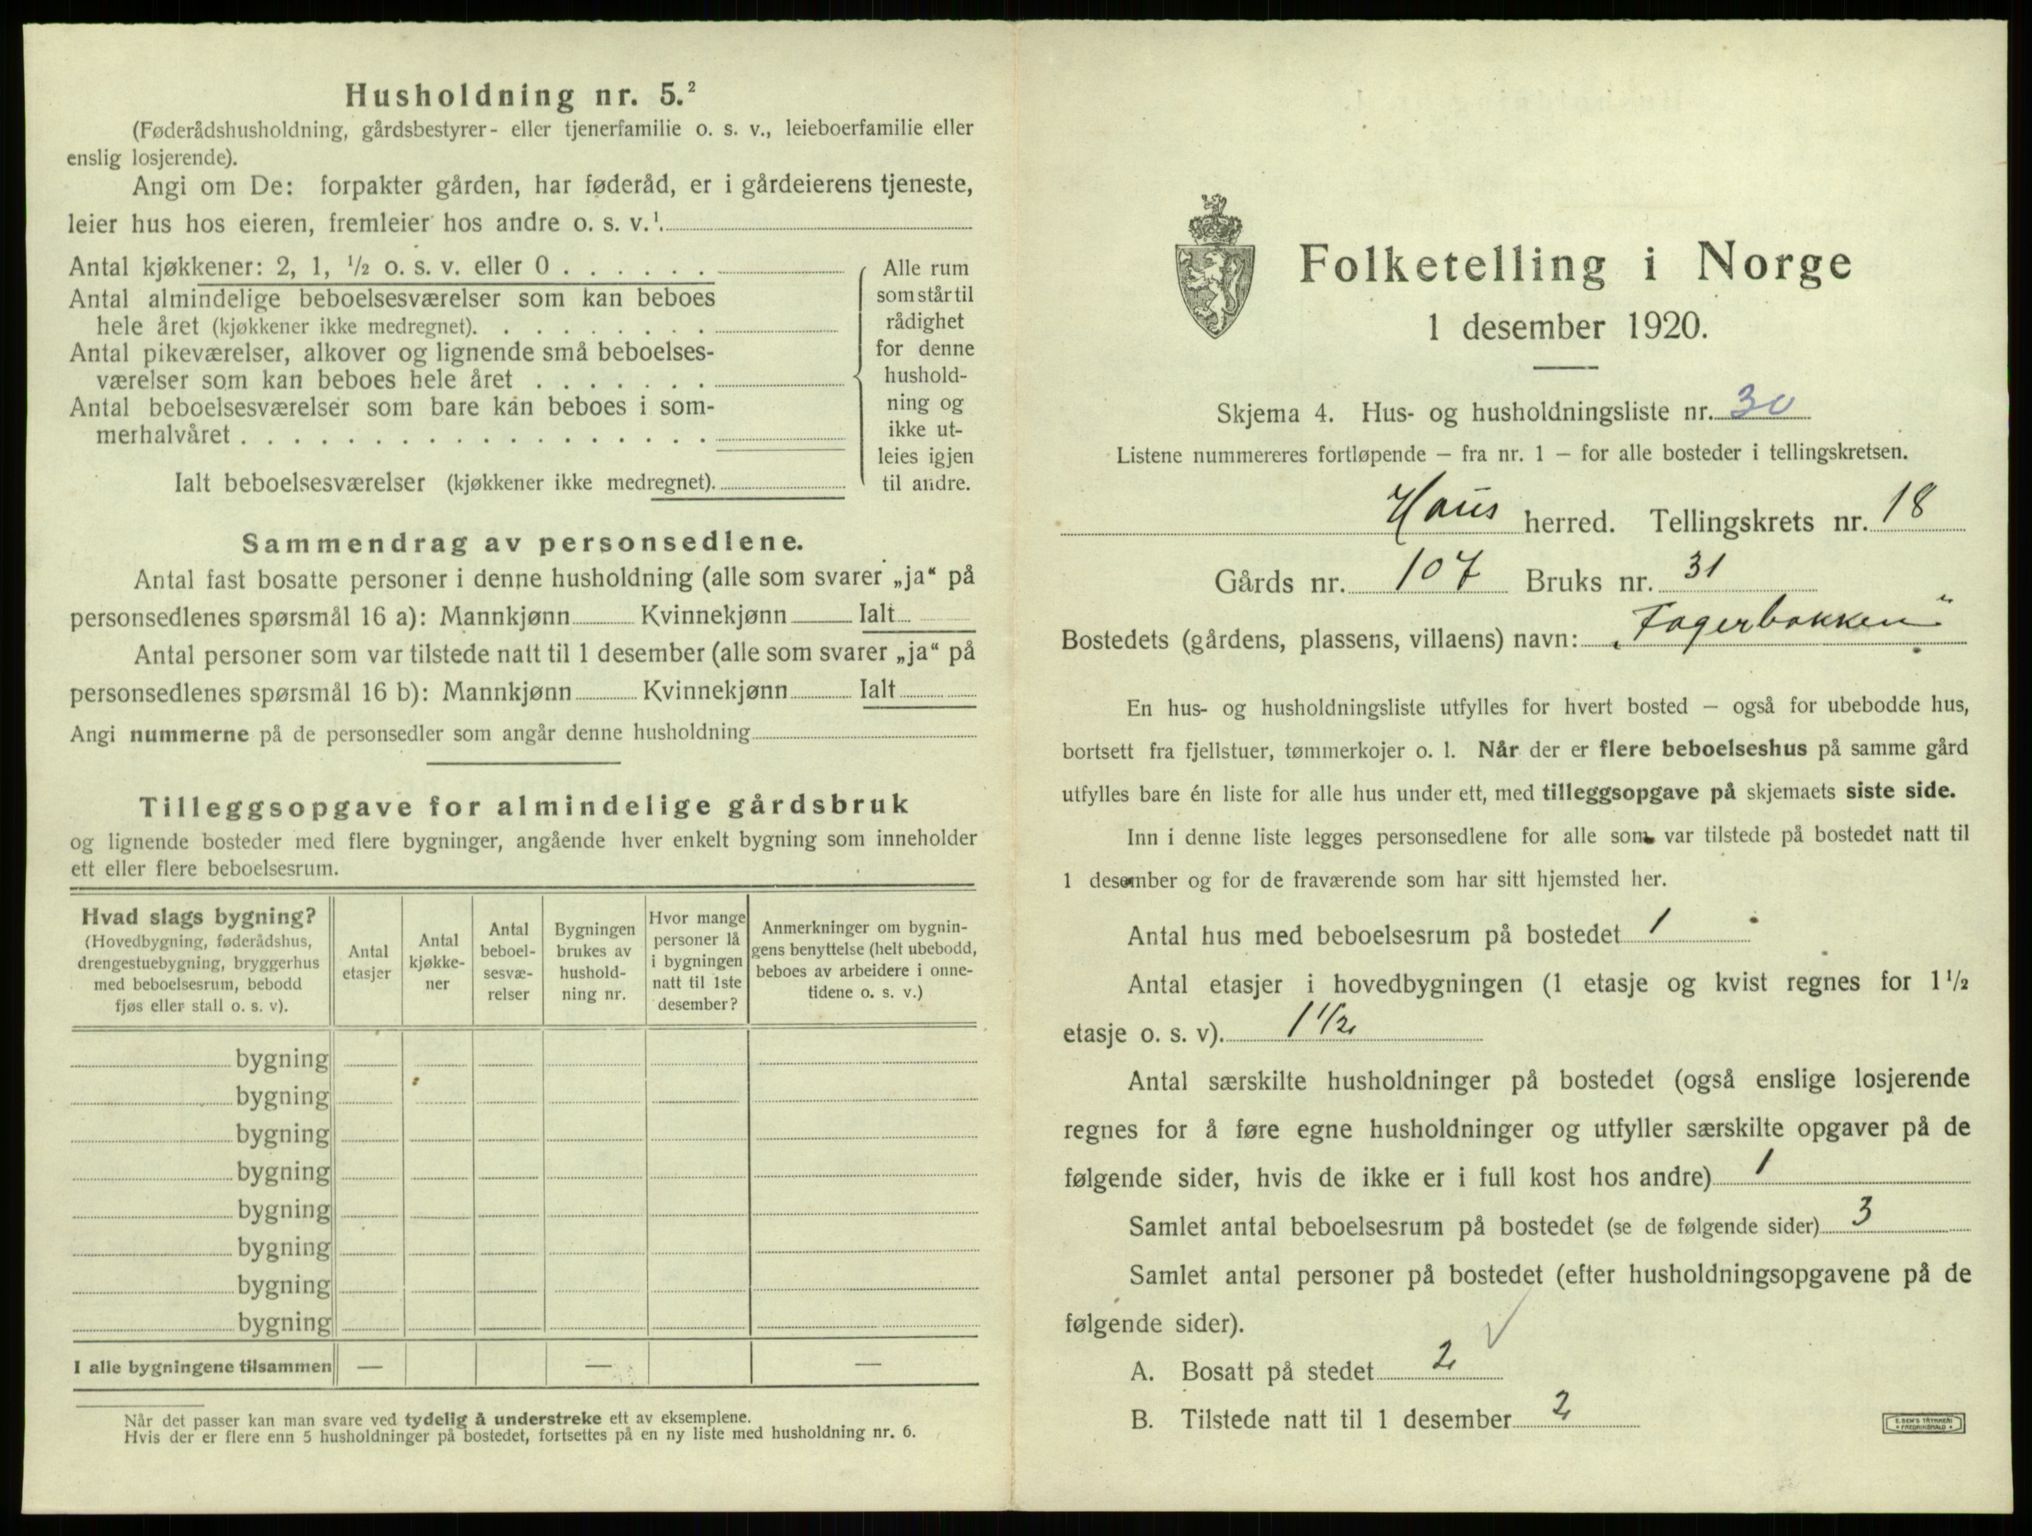 Husholdning nr. 5.²
(Føderådshusholdning, gårdsbestyrer- eller tjenerfamilie o. s. v., leieboerfamilie eller
enslig losjerende).
Angi om De: forpakter gården, har føderåd, er i gårdeierens tjeneste,
leier hus hos eieren, fremleier hos andre o. s. v.¹
Antal kjøkkener: 2, 1, ½ o. s. v. eller 0 . . . . . .
Antal almindelige beboelsesværelser som kan beboes
hele året (kjøkkener ikke medregnet). . . . . . . . .
Antal pikeværelser, alkover og lignende små beboelses-
værelser som kan beboes hele året . . . . . . .
Antal beboelsesværelser som bare kan beboes i som-
merhalvåret . . . . . . . . . . . . . . . . . .
Ialt beboelsesværelser (kjøkkener ikke medregnet).
Alle rum
som står til
rådighet
for denne
hushold-
ning og
ikke ut-
leies igjen
til andre.
Sammendrag av personsedlene.
Antal fast bosatte personer i denne husholdning (alle som svarer „ja“ på
personsedlenes spørsmål 16 a): Mannkjønn Kvinnekjønn Ialt
Antal personer som var tilstede natt til 1 desember (alle som svarer „ja“ på
personsedlenes spørsmål 16 b): Mannkjønn Kvinnekjønn Ialt
Angi nummerne på de personsedler som angår denne husholdning
Tilleggsopgave for almindelige gårdsbruk
og lignende bosteder med flere bygninger, angående hver enkelt bygning som inneholder
ett eller flere beboelsesrum.
Hvad slags bygning?
(Hovedbygning, føderådshus,
drengestuebygning, bryggerhus
med beboelsesrum, bebodd
fjøs eller stall o. s. v).
Antal
etasjer
Antal
kjøkke-
ner
Antal
beboel-
sesvæ-
relser
Bygningen
brukes av
hushold-
ning nr.
Hvor mange
personer lå
i bygningen
natt til 1ste
desember?
Anmerkninger om bygnin-
gens benyttelse (helt ubebodd,
beboes av arbeidere i onne-
tidene o. s. v.)
bygning
bygning
bygning
bygning
bygning
bygning
bygning
bygning
I alle bygningene tilsammen — — —
Når det passer kan man svare ved tydelig å understreke ett av eksemplene.
Hvis der er flere enn 5 husholdninger på bostedet, fortsettes på en ny liste med husholdning nr. 6.
Folketelling i Norge
1 desember 1920.
Skjema 4. Hus- og husholdningsliste nr. 30
Listene nummereres fortløpende — fra nr. 1 — for alle bosteder i tellingskretsen.
Haus herred. Tellingskrets nr. 18
Gårds nr. 107 Bruks nr. 31
Bostedets (gårdens, plassens, villaens) navn: „Fagerbakken“
En hus- og husholdningsliste utfylles for hvert bosted — også for ubebodde hus,
bortsett fra fjellstuer, tømmerkojer o. l. Når der er flere beboelseshus på samme gård
utfylles bare én liste for alle hus under ett, med tilleggsopgave på skjemaets siste side.
Inn i denne liste legges personsedlene for alle som var tilstede på bostedet natt til
1 desember og for de fraværende som har sitt hjemsted her.
Antal hus med beboelsesrum på bostedet 1
Antal etasjer i hovedbygningen (1 etasje og kvist regnes for 1½
etasje o. s. v). 1½
Antal særskilte husholdninger på bostedet (også enslige losjerende
regnes for å føre egne husholdninger og utfyller særskilte opgaver på de
følgende sider, hvis de ikke er i full kost hos andre) 1
Samlet antal beboelsesrum på bostedet (se de følgende sider) 3
Samlet antal personer på bostedet (efter husholdningsopgavene på de
følgende sider).
A. Bosatt på stedet 2
B. Tilstede natt til 1 desember 2